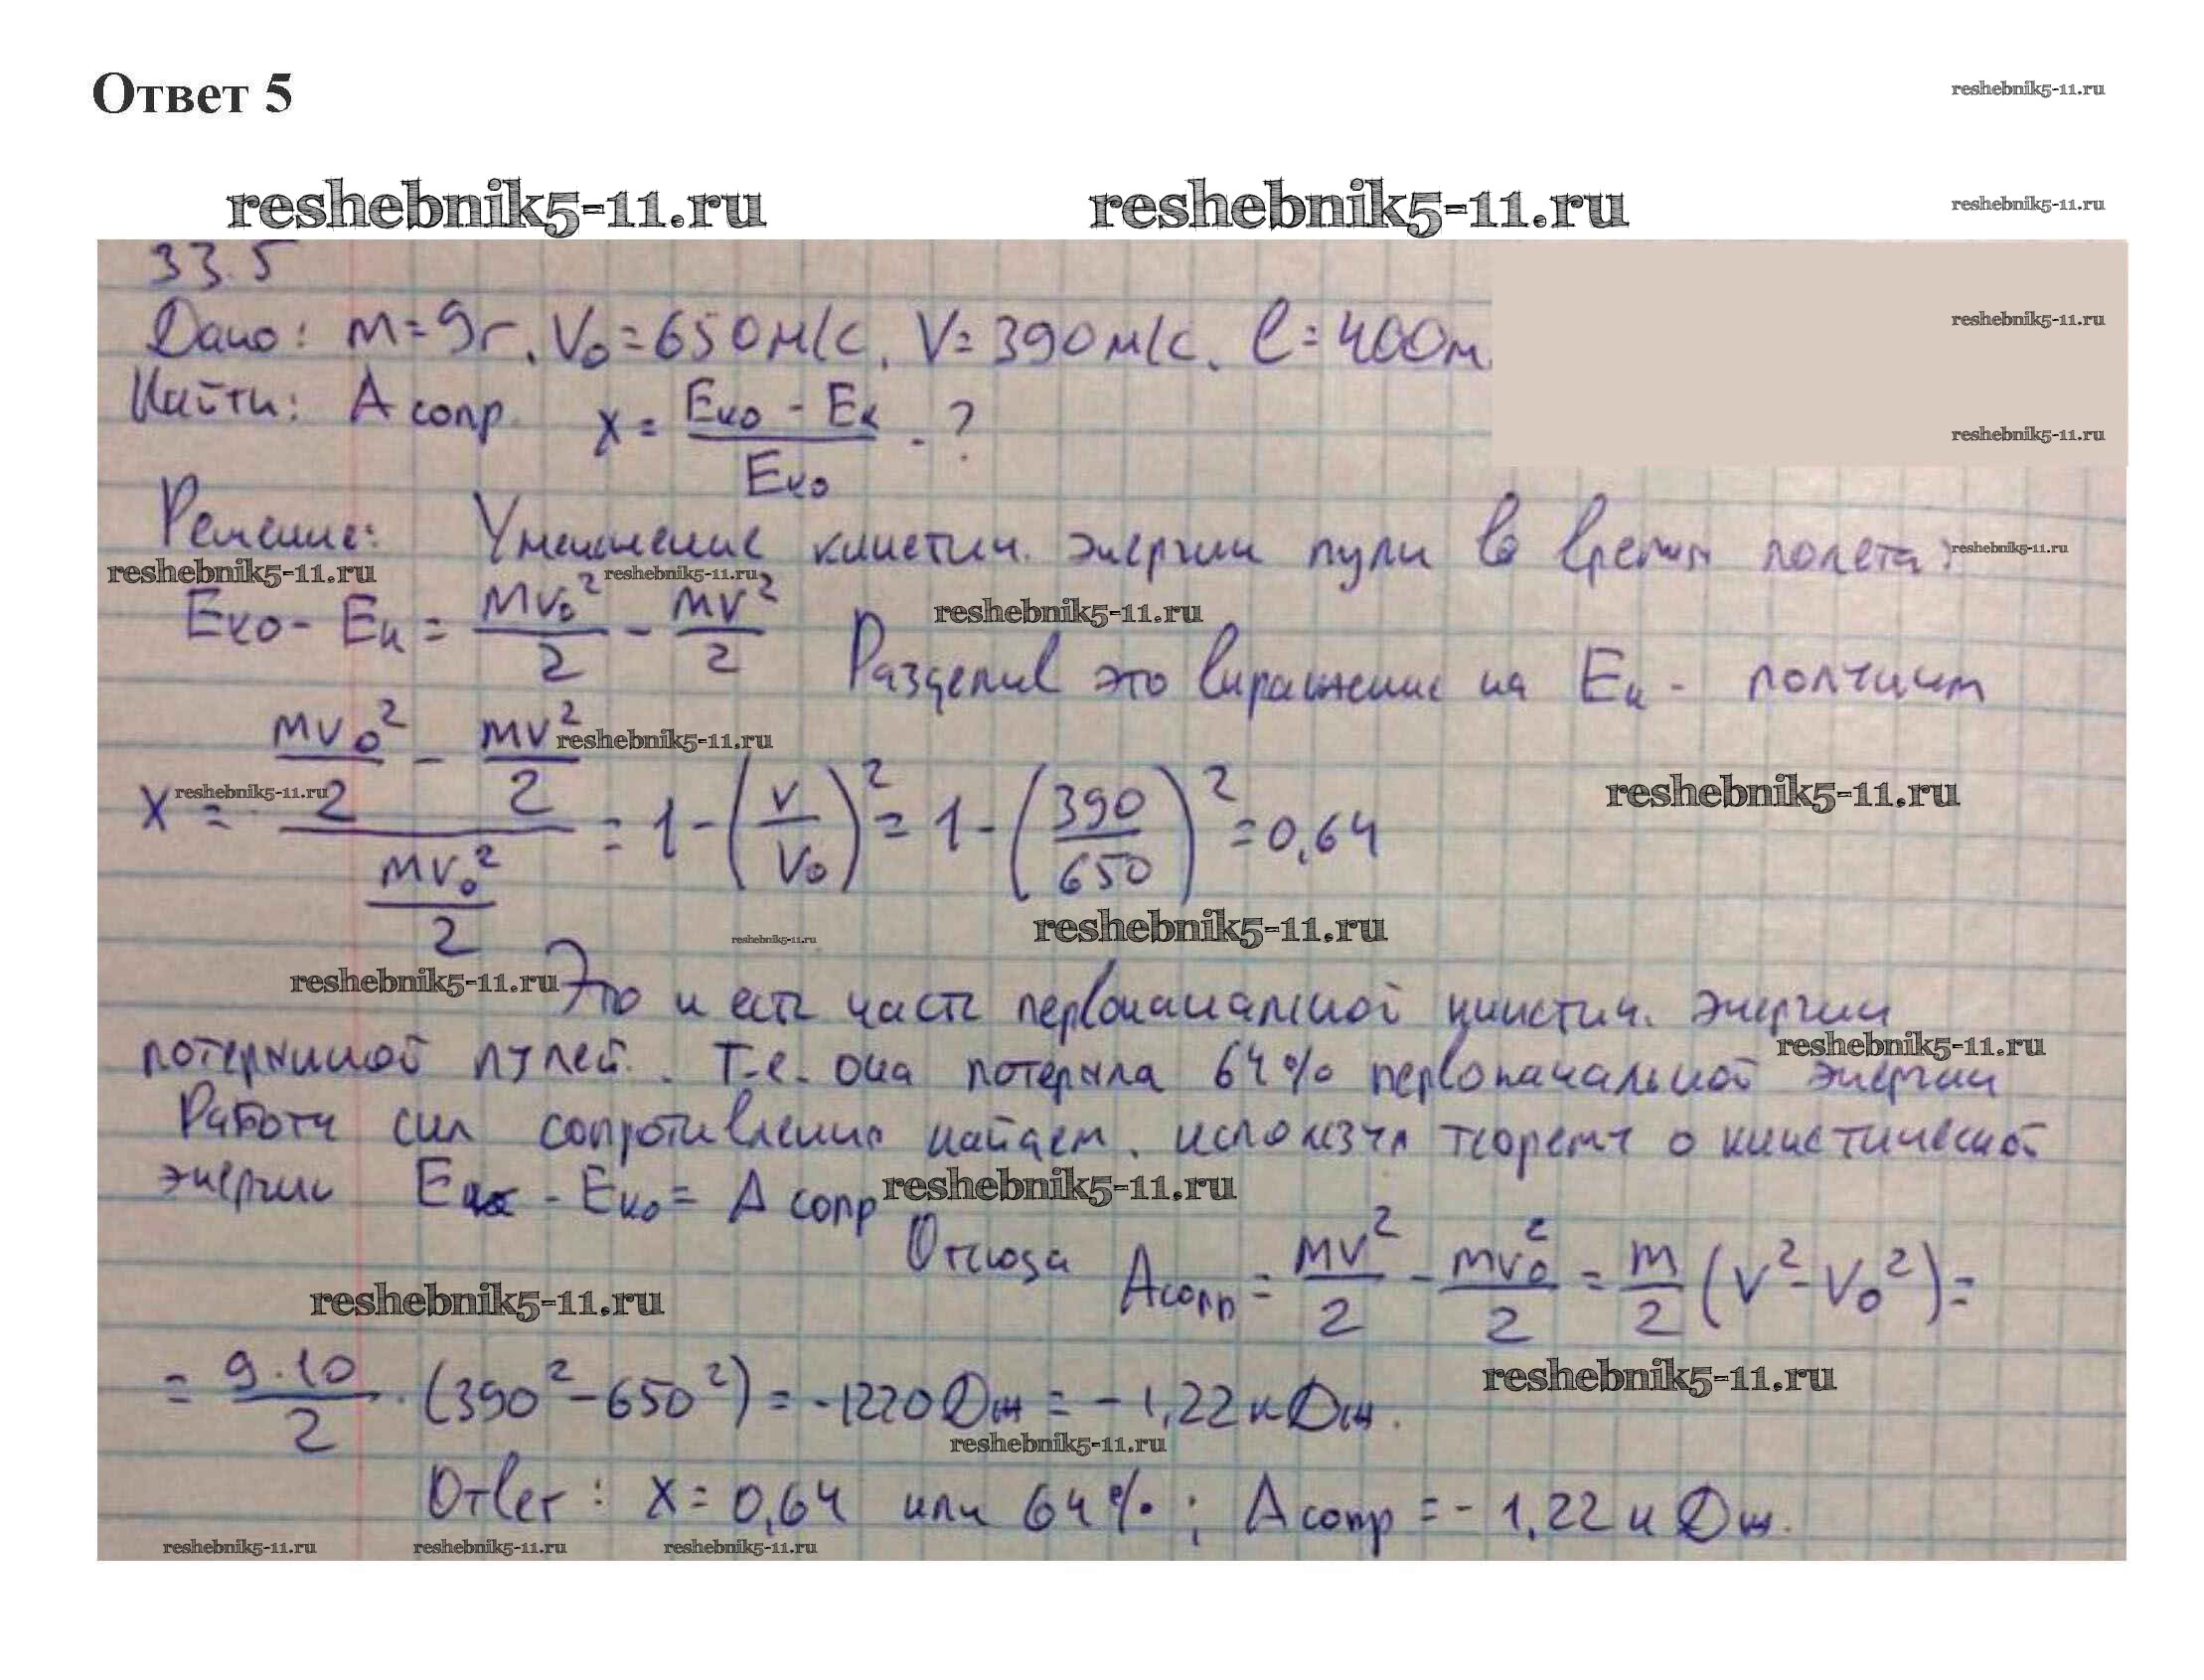 Ответ 5
reshebnik5-11.ru
reshebnik5-11.ru reshebnik5-11.ru reshebnik5-11.ru
33.5
Дано: m=9г, V₀=650м/с, V=390м/с, l=400м. reshebnik5-11.ru
Найти: A сопр. x = (Eк₀ - Eк)/Eк₀ - ? reshebnik5-11.ru
Решение: Уменьшение кинетич. энергии пули во время полета: reshebnik5-11.ru
reshebnik5-11.ru reshebnik5-11.ru
Eк₀ - Eк = mv₀²/2 - mv²/2 reshebnik5-11.ru
Разделив это выражение на Eк - получим
reshebnik5-11.ru
x = (mv₀²/2 - mv²/2)/(mv₀²/2) = 1 - (v/v₀)² = 1 - (390/650)² = 0,64
reshebnik5-11.ru reshebnik5-11.ru
reshebnik5-11.ru reshebnik5-11.ru
reshebnik5-11.ru Это и есть часть первоначальной кинетич. энергии
потерянной пулей. Т.е. она потеряла 64% первоначальной энергии reshebnik5-11.ru
Работу сил сопротивления найдем, используя теорему о кинетической
энергии Eк - Eк₀ = A сопр reshebnik5-11.ru
Отсюда Aсопр = mv²/2 - mv₀²/2 = m/2 (v² - v₀²) =
reshebnik5-11.ru
= 9·10/2 · (390² - 650²) = -1220Дж = -1,22кДж. reshebnik5-11.ru
reshebnik5-11.ru
Ответ: x = 0,64 или 64%; Aсопр = -1,22кДж.
reshebnik5-11.ru reshebnik5-11.ru reshebnik5-11.ru